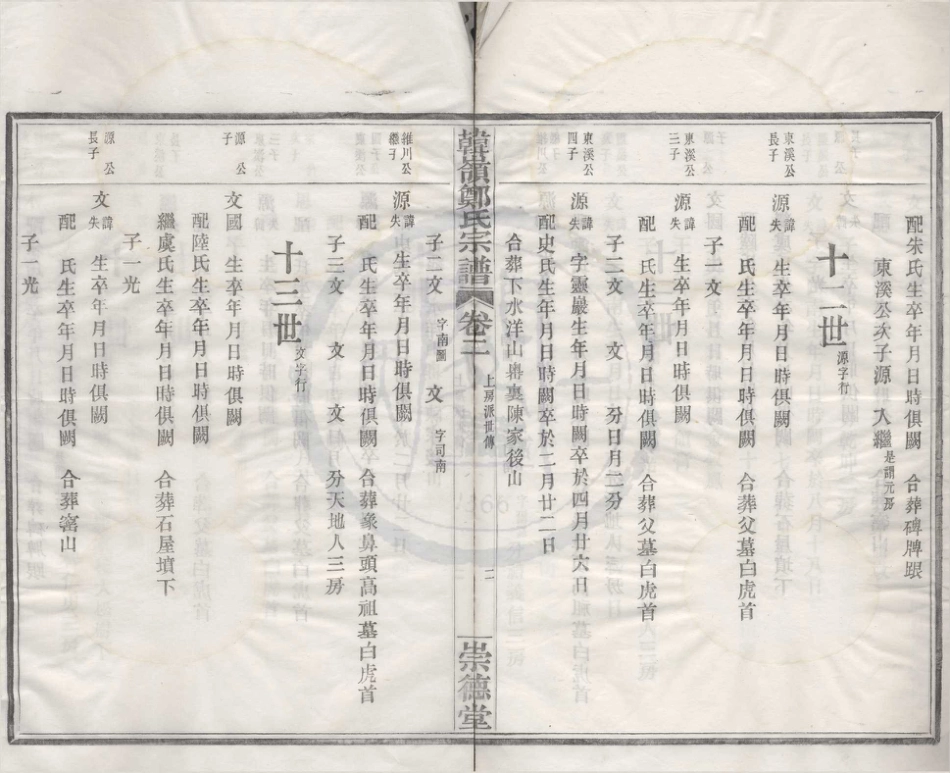 配朱氏生卒年月日時俱闕 合葬碑牌跟
東溪公次子源 入繼是謂元房
十二世源字行
東溪公長子
源諱失 生卒年月日時俱闕
配 氏生卒年月日時俱闕 合葬父墓白虎首
子一文
東溪公三子
源諱失 生卒年月日時俱闕
配 氏生卒年月日時俱闕 合葬父墓白虎首
子二文 文 分日月二分
東溪公四子
源諱失 字靈巖生年月日時闕卒於四月廿六日
配史氏生年月日時闕卒於二月廿二日
合葬下水洋山粦裏陳家後山
韓嶺鄭氏宗譜 卷二 上房派世傳 二 崇德堂
子二文 字南圖 文 字司南
維川公繼子
源諱失 生卒年月日時俱闕
配 氏生卒年月日時俱闕 合葬象鼻頭高祖墓白虎首
子三文 文 文 分天地人三房
十三世文字行
源公子
文國 生卒年月日時俱闕
配陸氏生卒年月日時俱闕
繼虞氏生卒年月日時俱闕 合葬石屋墳下
子一光
源公長子
文諱失 生卒年月日時俱闕
配 氏生卒年月日時俱闕 合葬窰山
子一光